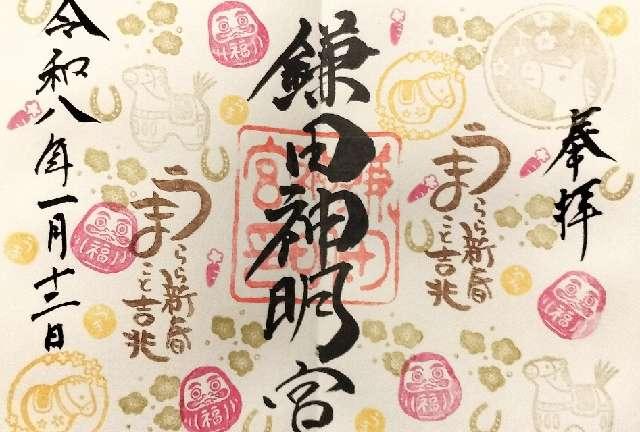 奉拝
鎌田神明宮
うらら新春
まこと吉兆
うらら新春
まこと吉兆
令和八年一月十二日
福
福
福
福